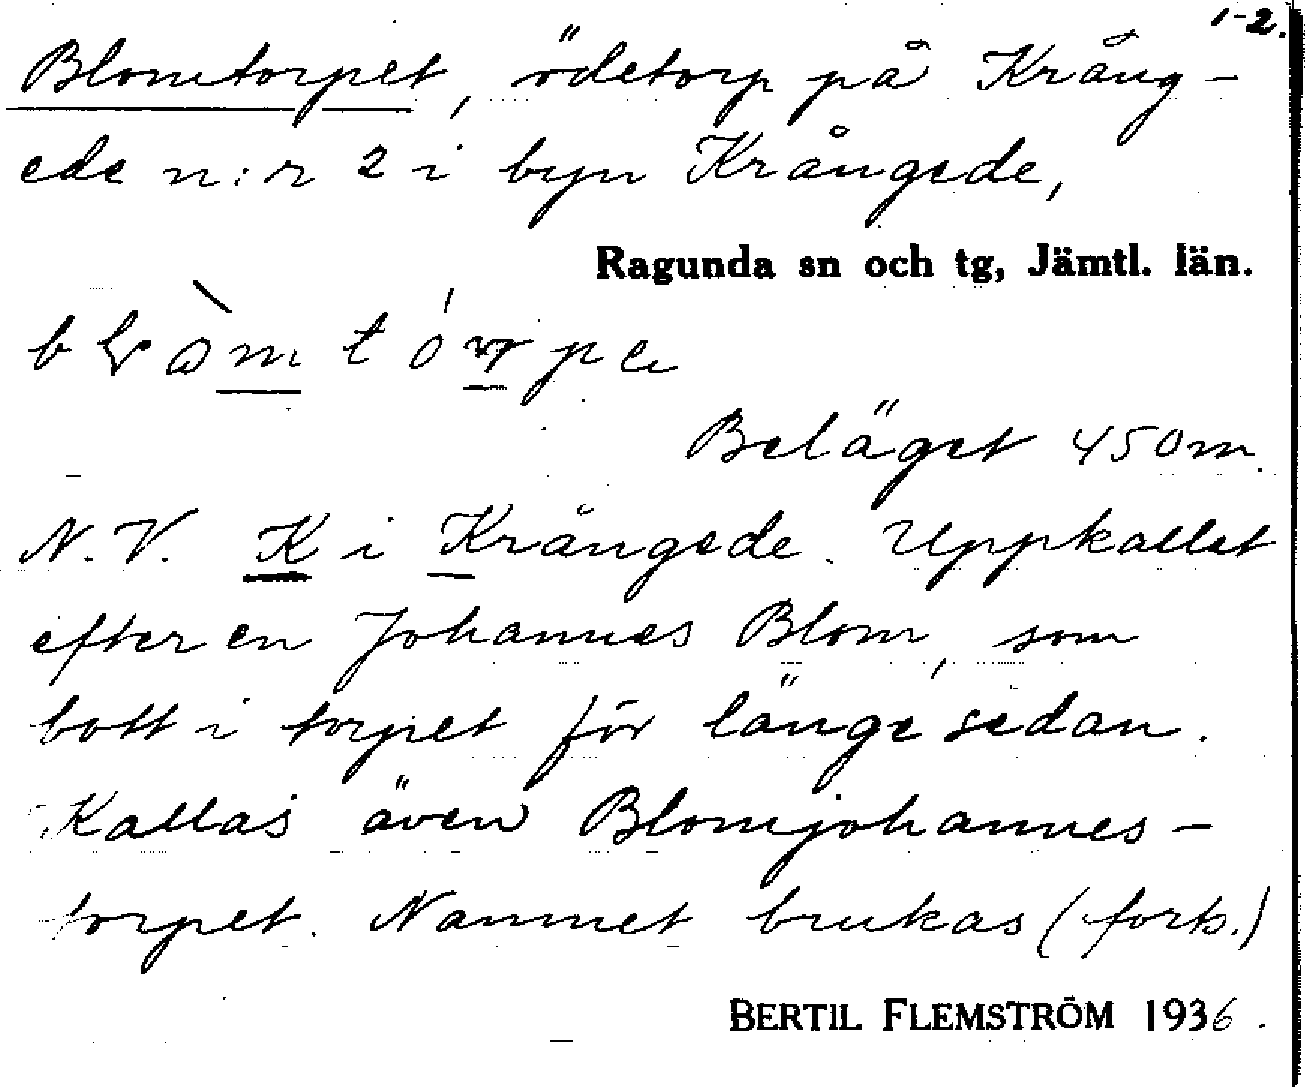 1-2.
Blomtorpet, ödetorp på Krång-
ede n:r 2 i byn Krångede,
Ragunda sn och tg, Jämtl. län.
Beläget 450 m.
N.V. K i Krångede. Uppkallat
efter en Johannes Blom, som
bott i torpet för länge sedan.
Kallas även Blomjohannes-
torpet. Namnet brukas (forts.)
BERTIL FLEMSTRÖM 1936.